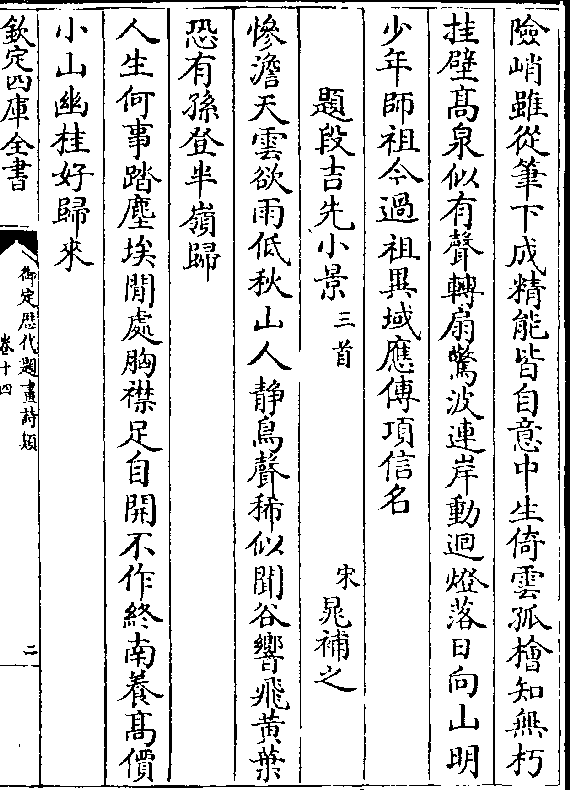 險峭雖從筆下成精能皆自意中生倚雲孤檜知無朽
挂壁髙泉似有聲轉扇驚波連岸動迴燈落日向山明
少年師祖今過祖異域應傳項信名
題段吉先小景三首 宋晁補之
慘澹天雲欲雨低秋山人静鳥聲稀似聞谷響飛黄葉
恐有孫登半嶺歸
人生何事踏塵埃閒處胸襟足自開不作終南養髙價
小山幽桂好歸來
欽定四庫全書
御定歴代題畫詩類
卷十四
二